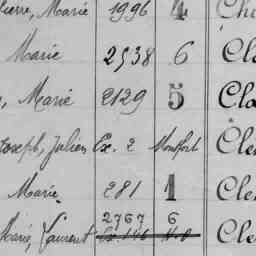 Pierre, Marie 1996 4 Ch
Marie 2538 6 Cla
, Marie 2129 5 Cla
Joseph, Julien Ex. 2 Montfort Cle
Marie 281 1 Cle
Marie, Laurent 2767 6 Cle